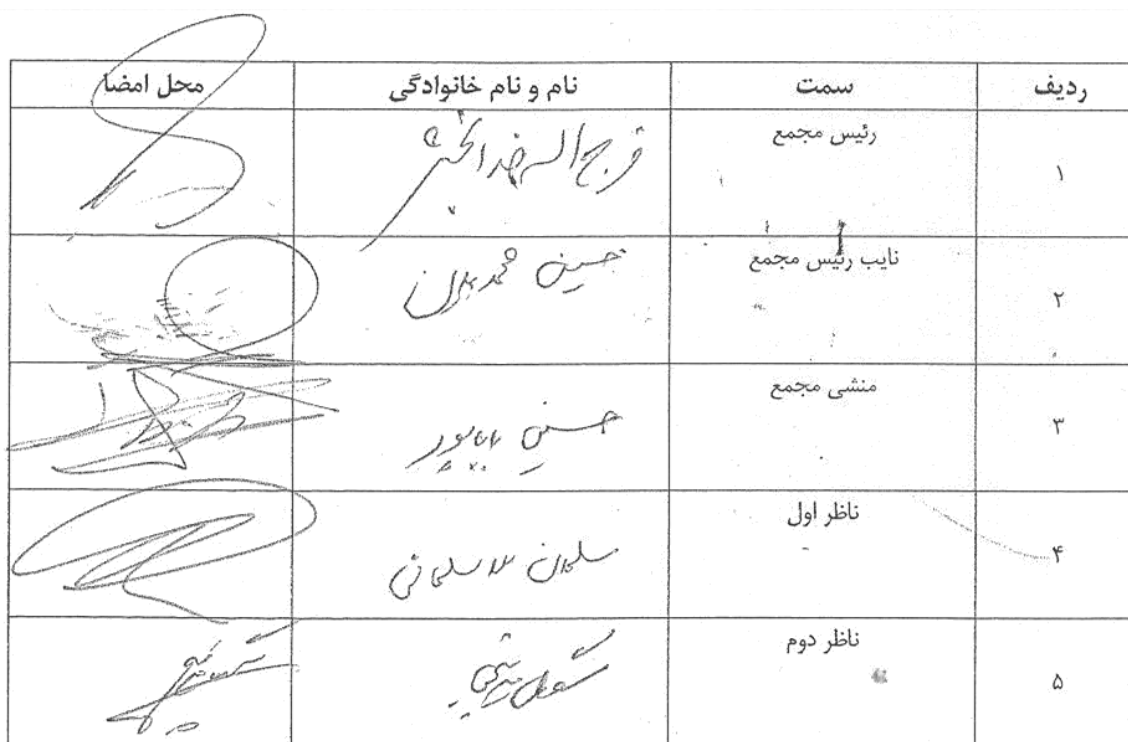 ردیف سمت نام و نام خانوادگی محل امضا
۱ رئیس مجمع فرج اله خدابخش
۲ نایب رئیس مجمع حسین محمد
۳ منشی مجمع حسین باباپور
۴ ناظر اول سلمان سلمانی
۵ ناظر دوم